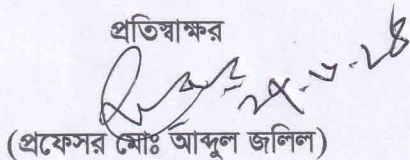 প্রতিস্বাক্ষর
(প্রফেসর মোঃ আব্দুল জলিল)